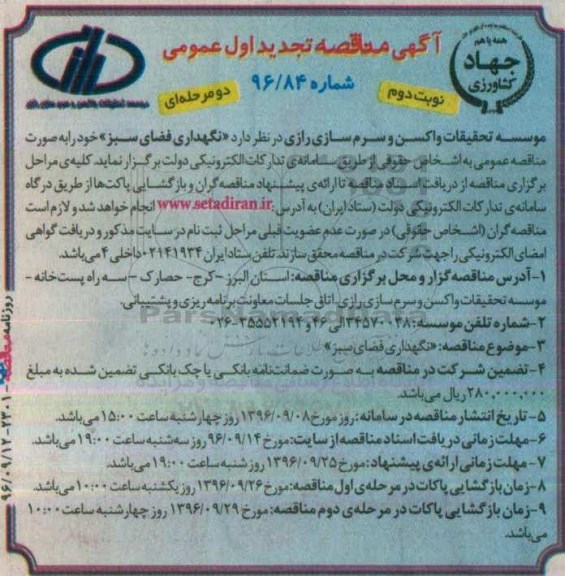 همه با هم
جهاد
کشاورزی
آگهی مناقصه تجدید اول عمومی
شماره ۹۶/۸۴
نوبت دوم
دو مرحله‌ای
موسسه تحقیقات واکسن و سرم سازی رازی
موسسه تحقیقات واکسن و سرم سازی رازی در نظر دارد «نگهداری فضای سبز» خود را به صورت
مناقصه عمومی به اشخاص حقوقی از طریق سامانه‌ی تدارکات الکترونیکی دولت برگزار نماید. کلیه‌ی مراحل
برگزاری مناقصه از دریافت اسناد مناقصه تا ارائه‌ی پیشنهاد مناقصه‌گران و بازگشایی پاکت‌ها از طریق درگاه
سامانه‌ی تدارکات الکترونیکی دولت (ستاد ایران) به آدرس: www.setadiran.ir انجام خواهد شد و لازم است
مناقصه گران (اشخاص حقوقی) در صورت عدم عضویت قبلی مراحل ثبت نام در سایت مذکور و دریافت گواهی
امضای الکترونیکی را جهت شرکت در مناقصه محقق سازند. تلفن ستاد ایران ۰۲۱۴۱۹۳۴ داخلی ۴ می‌باشد.
۱- آدرس مناقصه گزار و محل برگزاری مناقصه: استان البرز - کرج - حصارک - سه راه پست‌خانه -
موسسه تحقیقات واکسن و سرم سازی رازی. اتاق جلسات معاونت برنامه ریزی و پشتیبانی.
۲- شماره تلفن موسسه: ۳۴۵۷۰۰۳۸ الی ۴۶ و ۳۵۵۵۲۱۹۴-۰۲۶
۳- موضوع مناقصه: «نگهداری فضای سبز»
۴- تضمین شرکت در مناقصه به صورت ضمانت‌نامه بانکی یا چک بانکی تضمین شده به مبلغ
۲۸۰,۰۰۰,۰۰۰ ریال می‌باشد.
۵- تاریخ انتشار مناقصه در سامانه: روز مورخ ۱۳۹۶/۰۹/۰۸ روز چهارشنبه ساعت ۱۵:۰۰ می‌باشد.
۶- مهلت زمانی دریافت اسناد مناقصه از سایت: مورخ ۹۶/۰۹/۱۴ روز سه‌شنبه ساعت ۱۹:۰۰ می‌باشد.
۷- مهلت زمانی ارائه‌ی پیشنهاد: مورخ ۱۳۹۶/۰۹/۲۵ روز شنبه ساعت ۱۹:۰۰ می‌باشد.
۸- زمان بازگشایی پاکات در مرحله‌ی اول مناقصه: مورخ ۱۳۹۶/۰۹/۲۶ روز یکشنبه ساعت ۱۰:۰۰ می‌باشد.
۹- زمان بازگشایی پاکات در مرحله‌ی دوم مناقصه: مورخ ۱۳۹۶/۰۹/۲۹ روز چهارشنبه ساعت ۱۰:۰۰
می‌باشد.
روزنامه مناقصه ۲۳۰۱-۹۶/۰۹/۱۲
ParsNamadData